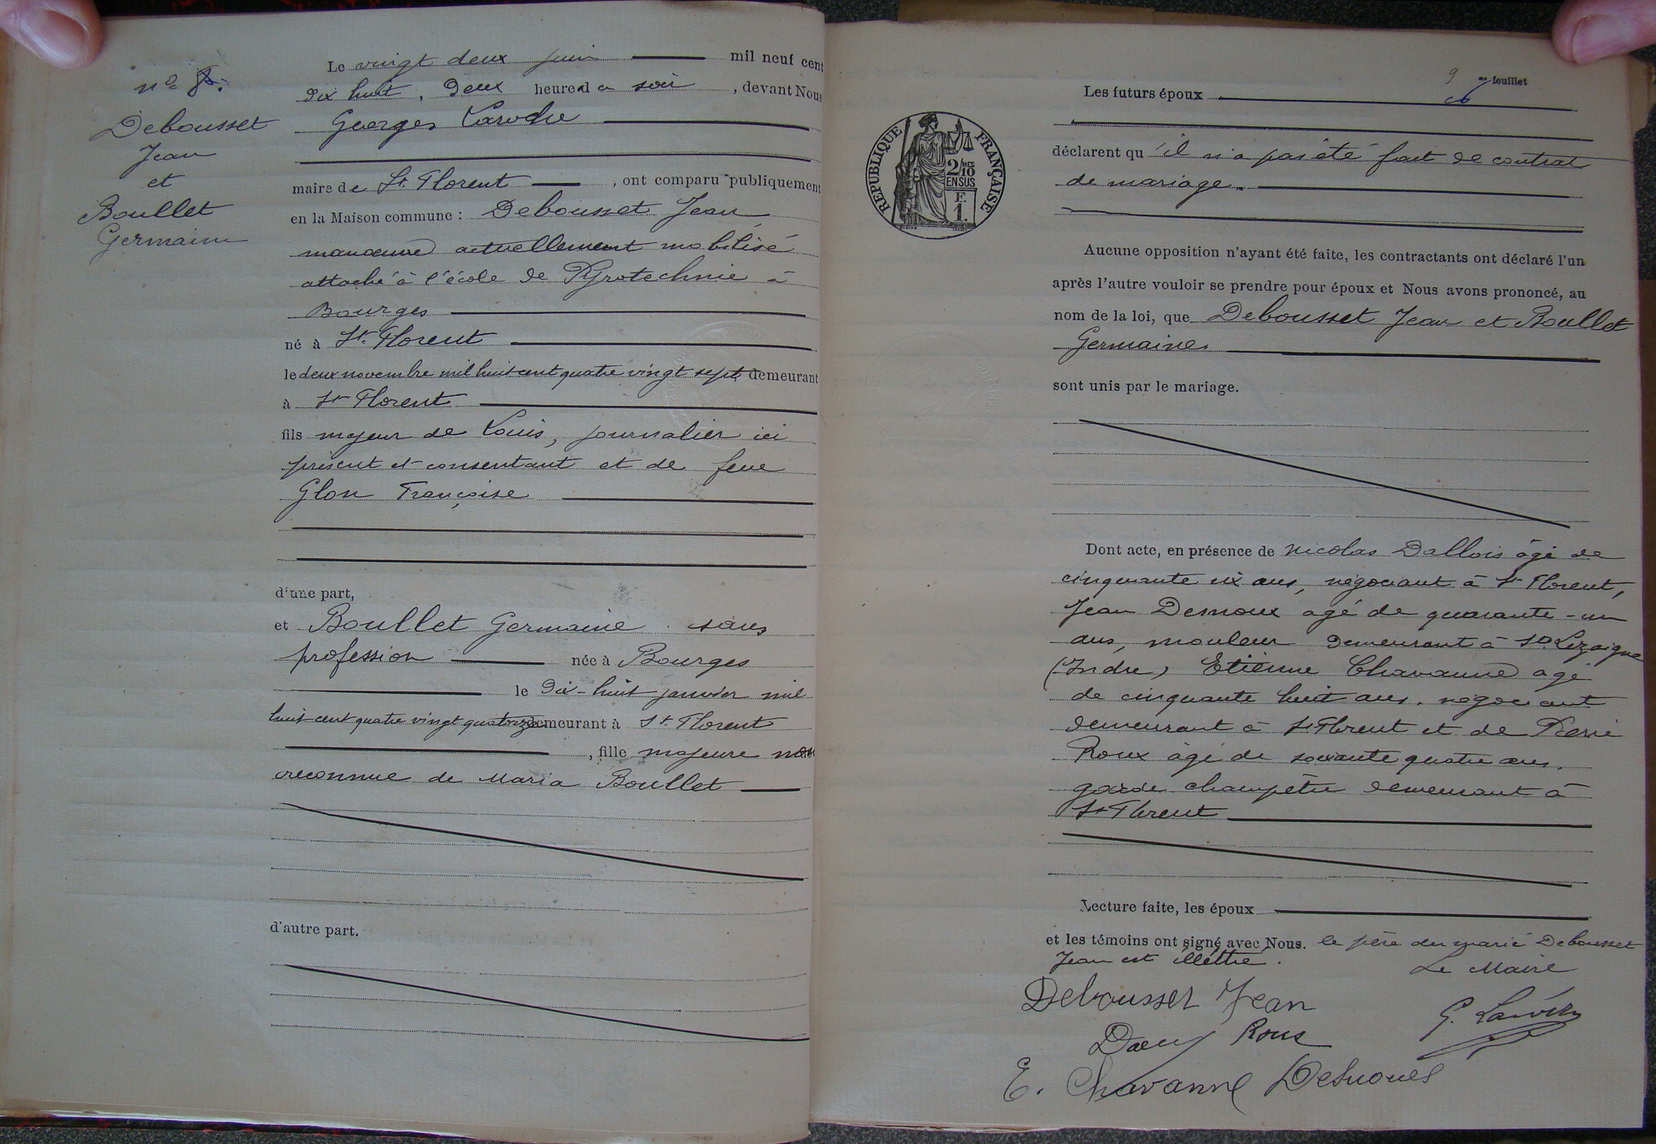 nº 8.
Debousset
Jean
et
Boullet
Germaine
Le vingt deux juin mil neuf cent
dix huit, deux heures du soir, devant Nous
Georges Laroche
maire de St. Florent, ont comparu publiquement
en la Maison commune : Debousset Jean
manœuvre actuellement mobilisé
attaché à l'école de Pyrotechnie à
Bourges
né à St. Florent
le deux novembre mil huit cent quatre vingt sept demeurant
à St Florent
fils majeur de Louis, journalier ici
présent et consentant et de feue
Glon Françoise
d'une part,
et Boullet Germaine sans
profession née à Bourges
le dix-huit janvier mil
huit cent quatre vingt quatorze demeurant à St Florent
, fille majeure non
reconnue de Maria Boullet
d'autre part.
9 me feuillet
Les futurs époux
déclarent qu'il n'a pas été fait de contrat
de mariage.
RÉPUBLIQUE FRANÇAISE
2/10
EN SUS
F.
1.
Aucune opposition n'ayant été faite, les contractants ont déclaré l'un
après l'autre vouloir se prendre pour époux et Nous avons prononcé, au
nom de la loi, que Debousset Jean et Boullet
Germaine
sont unis par le mariage.
Dont acte, en présence de Nicolas Dallois âgé de
cinquante six ans, négociant à St Florent,
Jean Desnoux âgé de quarante-un
ans, mouleur demeurant à St Lizaigne
(Indre) Etienne Chavanne âgé
de cinquante huit ans, négociant
demeurant à St Florent et de Pierre
Roux âgé de soixante quatre ans,
garde champêtre demeurant à
St Florent
Lecture faite, les époux
et les témoins ont signé avec Nous. le père du marié Debousset
Jean est illettré.
Le Maire
Debousset Jean
Roux
E. Chavanne